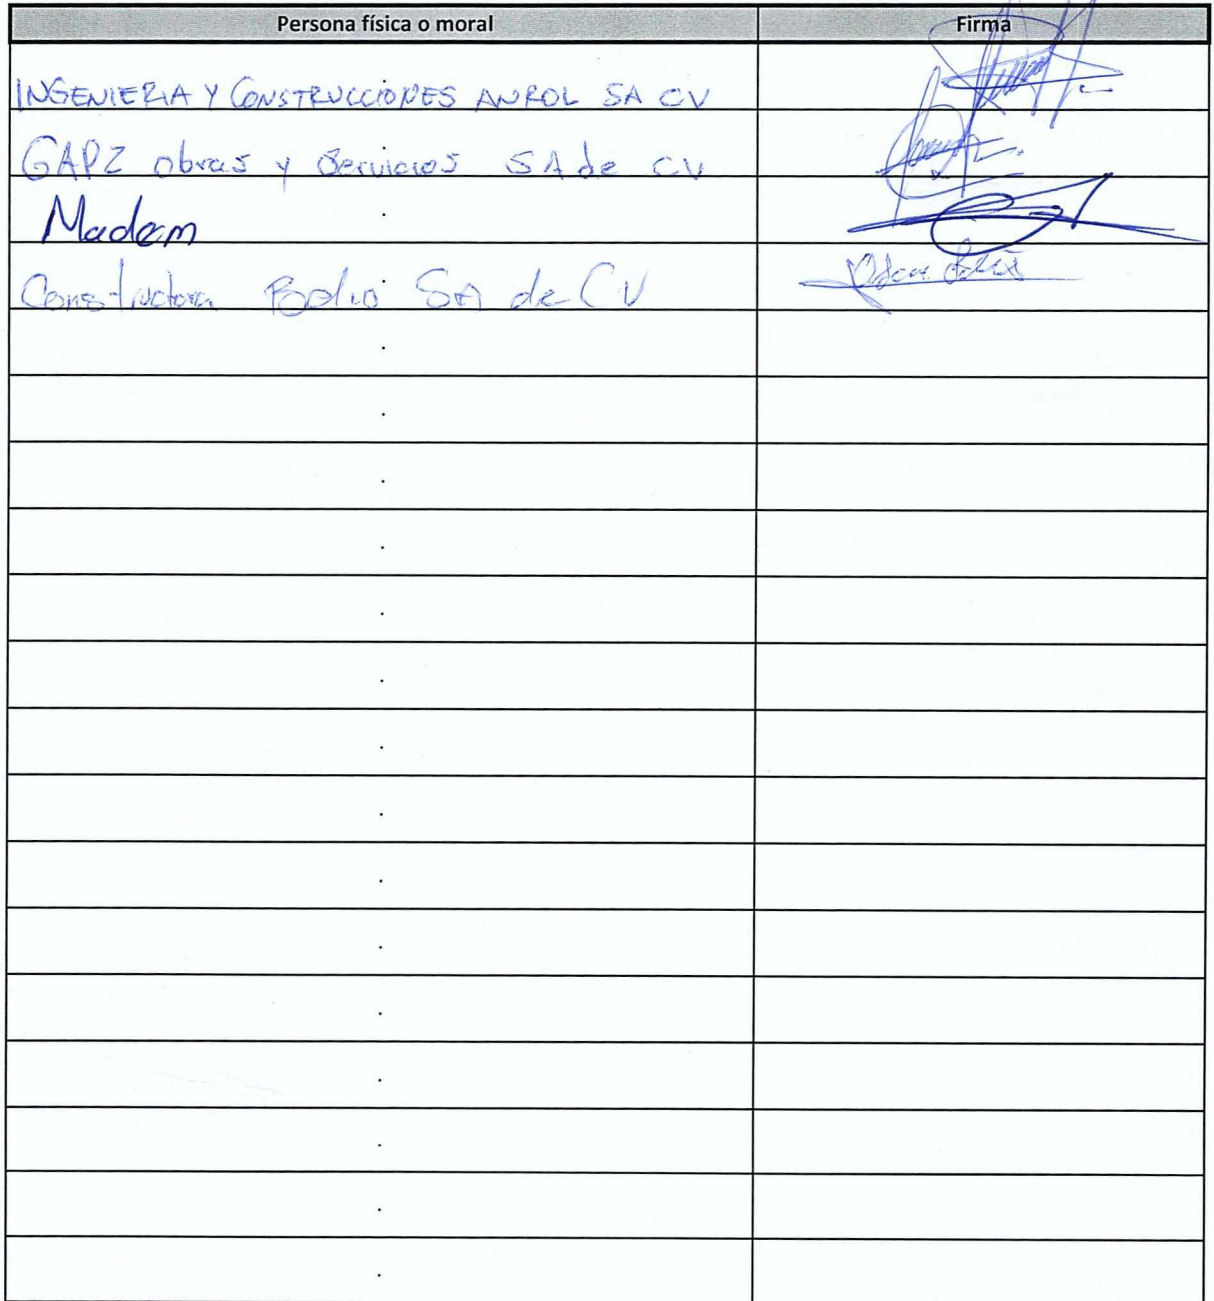 Persona física o moral Firma
INGENIERIA Y CONSTRUCCIONES ANROL SA CV
GAPZ obras y Servicios SA de CV
Madecm
Constructora Bolio SA de CV